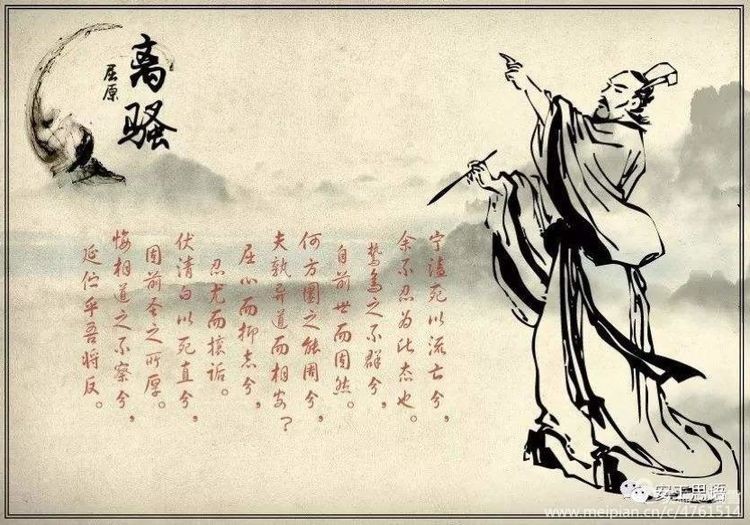 离骚
屈原
宁溘死以流亡兮，
余不忍为此态也。
鸷鸟之不群兮，
自前世而固然。
何方圜之能周兮，
夫孰异道而相安？
屈心而抑志兮，
忍尤而攘诟。
伏清白以死直兮，
固前圣之所厚。
悔相道之不察兮，
延伫乎吾将反。
安工思语
www.meipian.cn/c/4761514